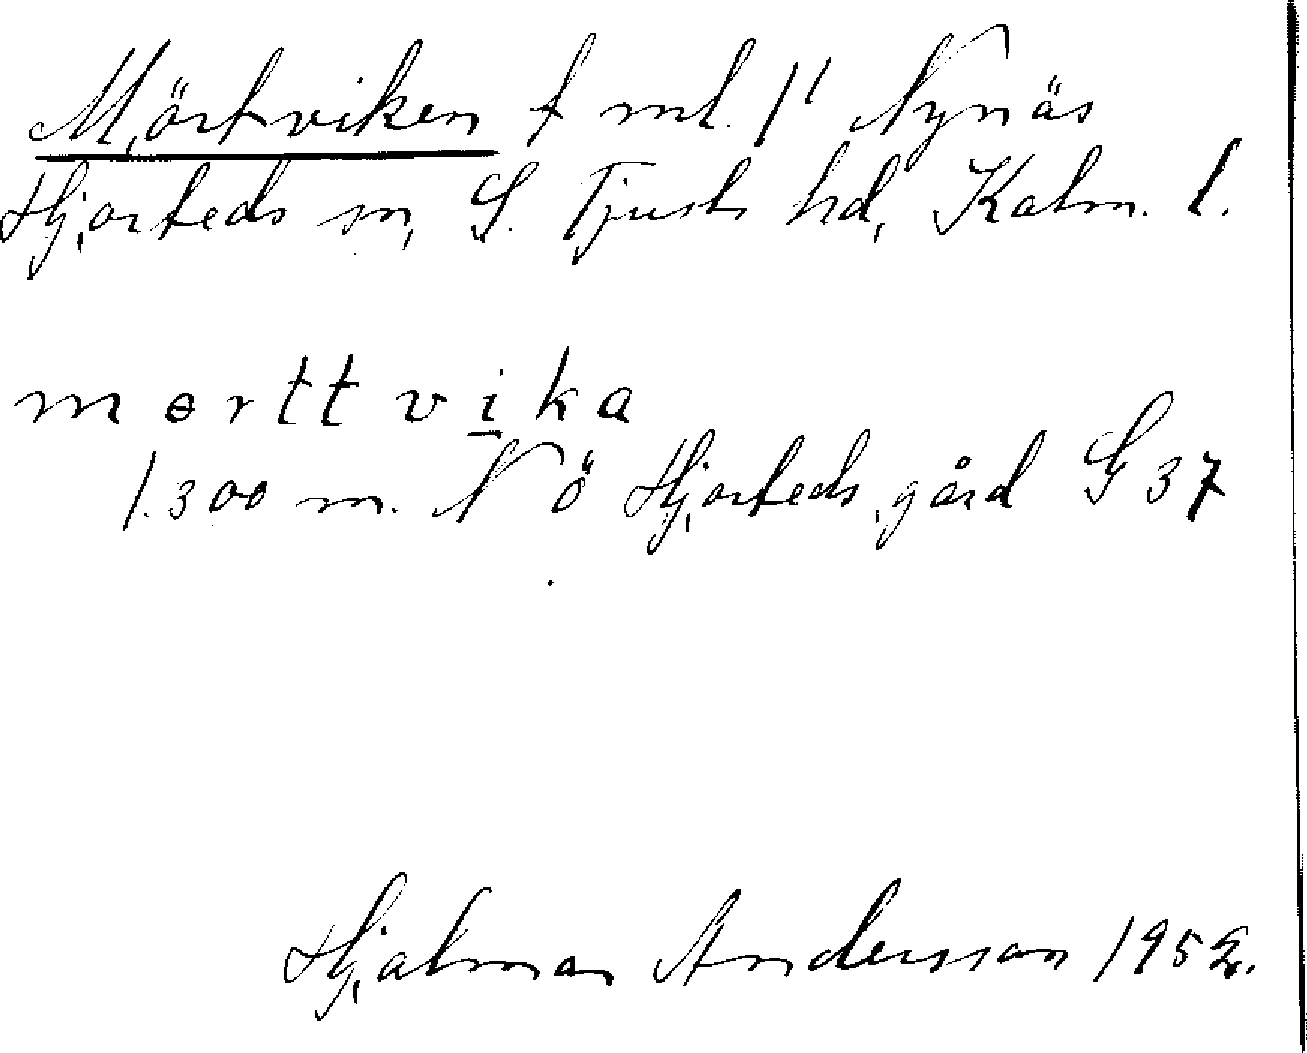 Mörtviken t ml. 1' Nynäs
Hjorteds sn, S. Tjusts hd, Kalm. l.
mɵrttvika
1.300 m. N Ö Hjorteds gård G 37
Hjalmar Andersson 1952.